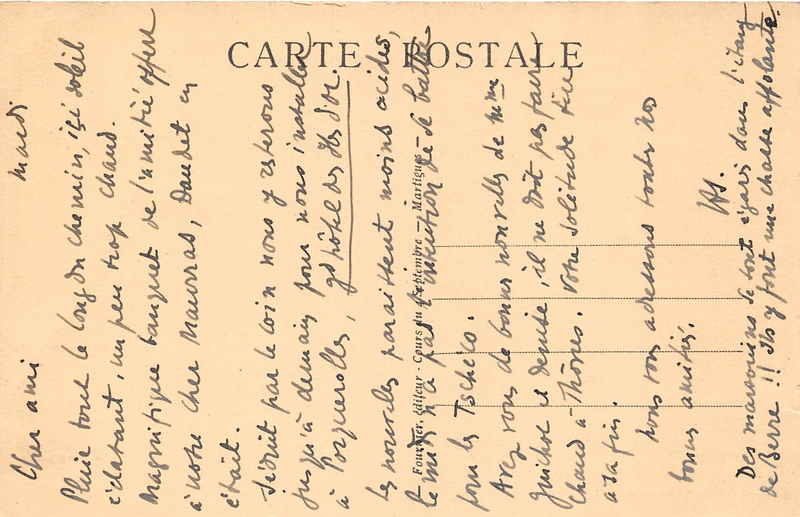 CARTE POSTALE
Fournier, éditeur - Cours du 4 Septembre - Martigues
Mardi
Cher ami
Pluie tout le long du chemin, ici soleil
éclatant, un peu trop chaud.
Magnifique banquet de l'amitié offert
à notre cher Maurras, Daudet en
était.
Séduit par le coin nous y resterons
jusqu'à demain pour nous installer
à Porquerolles, gd hôtel des Iles d'or.
Les nouvelles paraissent moins acides,
le midi n'a pas l'intention de se battre
pour les Tchéco.
Avez vous de bonnes nouvelles de Mme
et Denise, il ne doit pas faire
chaud à Thônes. Votre solitude
a sa fin.
Nous vous adressons toutes nos
bonnes amitiés.
Des marsouins se sont égarés dans l'étang
de Berre !! Ils y font une chasse affolante.